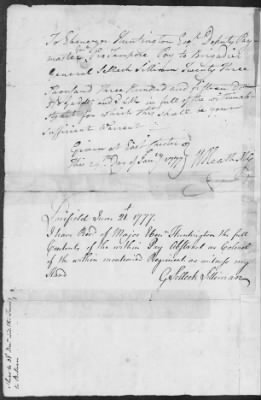 To Ebenezer Huntington Esqr Deputy Pay
master Protempore Pay to Brigadier
General Selleck Silliman Twenty Three
Thousand Three Hundred and Fifteen
in full of the within
for which this shall be your
Sufficient Warrant
Given at East Chester
This Day of Jany 1777 W Heath
Fairfield June 21st 1777.
I have Recd of Major Ebenr Huntington the full
Contents of the within Pay Abstract as Colonel
of the within mentioned Regiment as witness my
Hand
G. Selleck Silliman